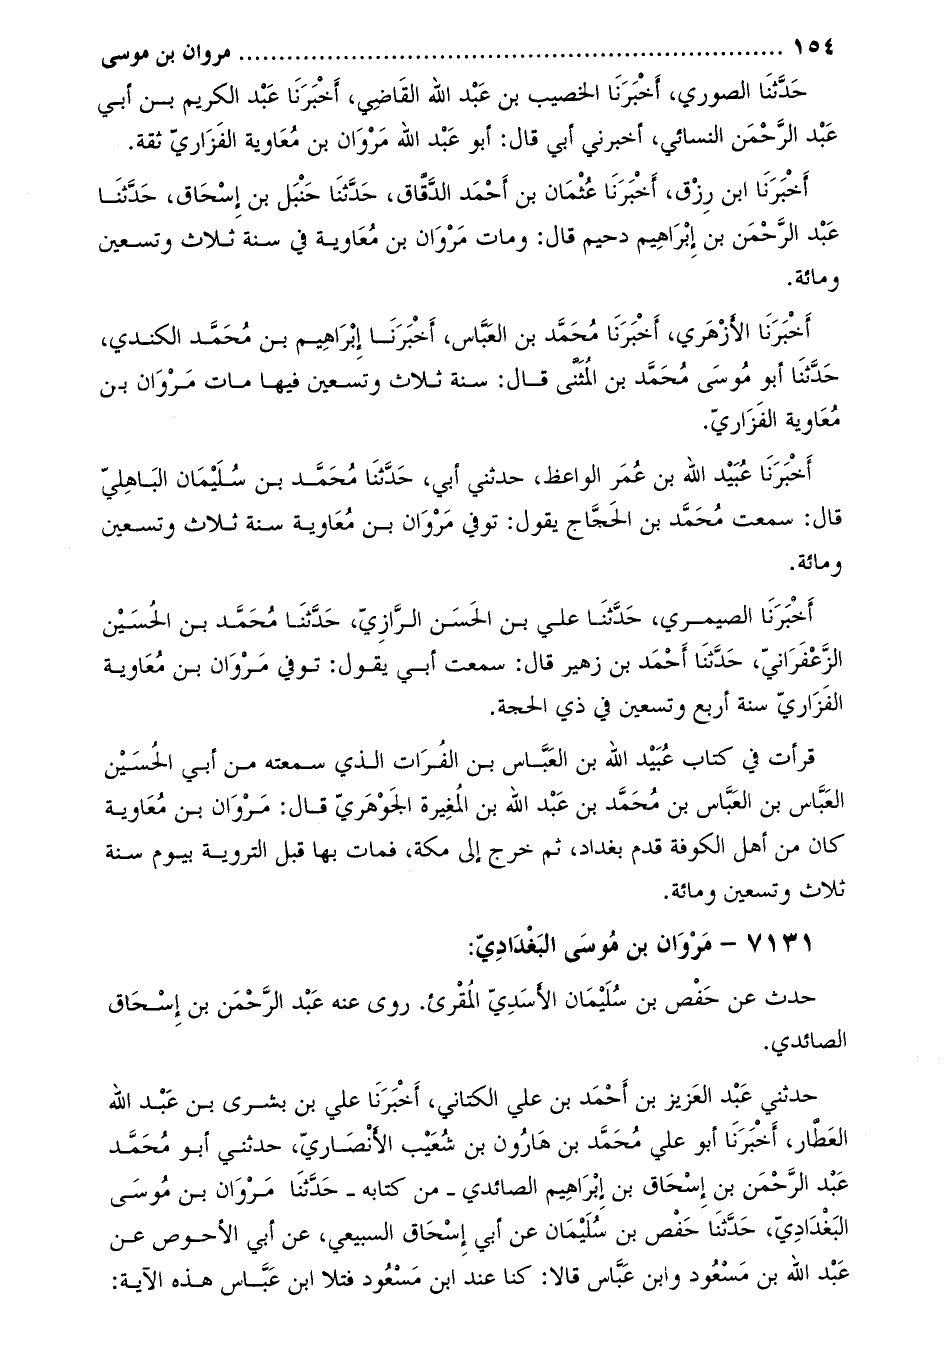 ١٥٤ ........................................................................ مروان بن موسى
حَدَّثَنَا الصوري، أَخْبَرَنَا الخصيب بن عَبْد الله القَاضِي، أَخْبَرَنَا عَبْد الكريم بن أبي
عَبْد الرَّحْمَن النسائي، أخبرني أبي قال: أبو عَبْد الله مَرْوَان بن مُعَاوية الفَزَاريّ ثقة.
أَخْبَرَنَا ابن رِزْق، أَخْبَرَنَا عُثْمَان بن أَحْمَد الدَّقَّاق، حَدَّثَنَا حَنْبَل بن إِسْحَاق، حَدَّثَنَا
عَبْد الرَّحْمَن بن إِبْرَاهِيم دحيم قال: ومات مَرْوَان بن مُعَاوية في سنة ثلاث وتسعين
ومائة.
أَخْبَرَنَا الأَزْهَري، أَخْبَرَنَا مُحَمَّد بن العَبَّاس، أَخْبَرَنَا إِبْرَاهِيم بن مُحَمَّد الكندي،
حَدَّثَنَا أبو مُوسَى مُحَمَّد بن المُثَنَّى قال: سنة ثلاث وتسعين فيها مات مَرْوَان بن
مُعَاوية الفَزَاريّ.
أَخْبَرَنَا عُبَيْد الله بن عُمَر الواعظ، حدثني أبي، حَدَّثَنَا مُحَمَّد بن سُلَيْمَان البَاهليّ
قال: سمعت مُحَمَّد بن الحَجَّاج يقول: توفي مَرْوَان بن مُعَاوية سنة ثلاث وتسعين
ومائة.
أَخْبَرَنَا الصيمري، حَدَّثَنَا علي بن الحَسَن الرَّازِيّ، حَدَّثَنَا مُحَمَّد بن الحُسَيْن
الزَّعْفَرَانيّ، حَدَّثَنَا أَحْمَد بن زهير قال: سمعت أبي يقول: توفي مَرْوَان بن مُعَاوية
الفَزَاريّ سنة أربع وتسعين في ذي الحجة.
قرأت في كتاب عُبَيْد الله بن العَبَّاس بن الفُرَات الذي سمعته من أبي الحُسَيْن
العَبَّاس بن العَبَّاس بن مُحَمَّد بن عَبْد الله بن المُغِيرة الجَوْهَريّ قال: مَرْوَان بن مُعَاوية
كان من أهل الكوفة قدم بغداد، ثم خرج إلى مكة، فمات بها قبل التروية بيوم سنة
ثلاث وتسعين ومائة.
٧١٣١ – مَرْوَان بن مُوسَى البَغْدَادِيّ:
حدث عن حَفْص بن سُلَيْمَان الأَسَدِيّ المُقْرئ. روى عنه عَبْد الرَّحْمَن بن إِسْحَاق
الصائدي.
حدثني عَبْد العَزيز بن أَحْمَد بن علي الكتاني، أَخْبَرَنَا علي بن بشرى بن عَبْد الله
العَطَّار، أَخْبَرَنَا أبو علي مُحَمَّد بن هَارُون بن شُعَيْب الأَنْصَاريّ، حدثني أبو مُحَمَّد
عَبْد الرَّحْمَن بن إِسْحَاق بن إِبْرَاهِيم الصائدي - من كتابه - حَدَّثَنَا مَرْوَان بن مُوسَى
البَغْدَادِيّ، حَدَّثَنَا حَفْص بن سُلَيْمَان عن أبي إِسْحَاق السبيعي، عن أبي الأحوص عن
عَبْد الله بن مَسْعُود وابن عَبَّاس قالا: كنا عند ابن مَسْعُود فتلا ابن عَبَّاس هذه الآية: